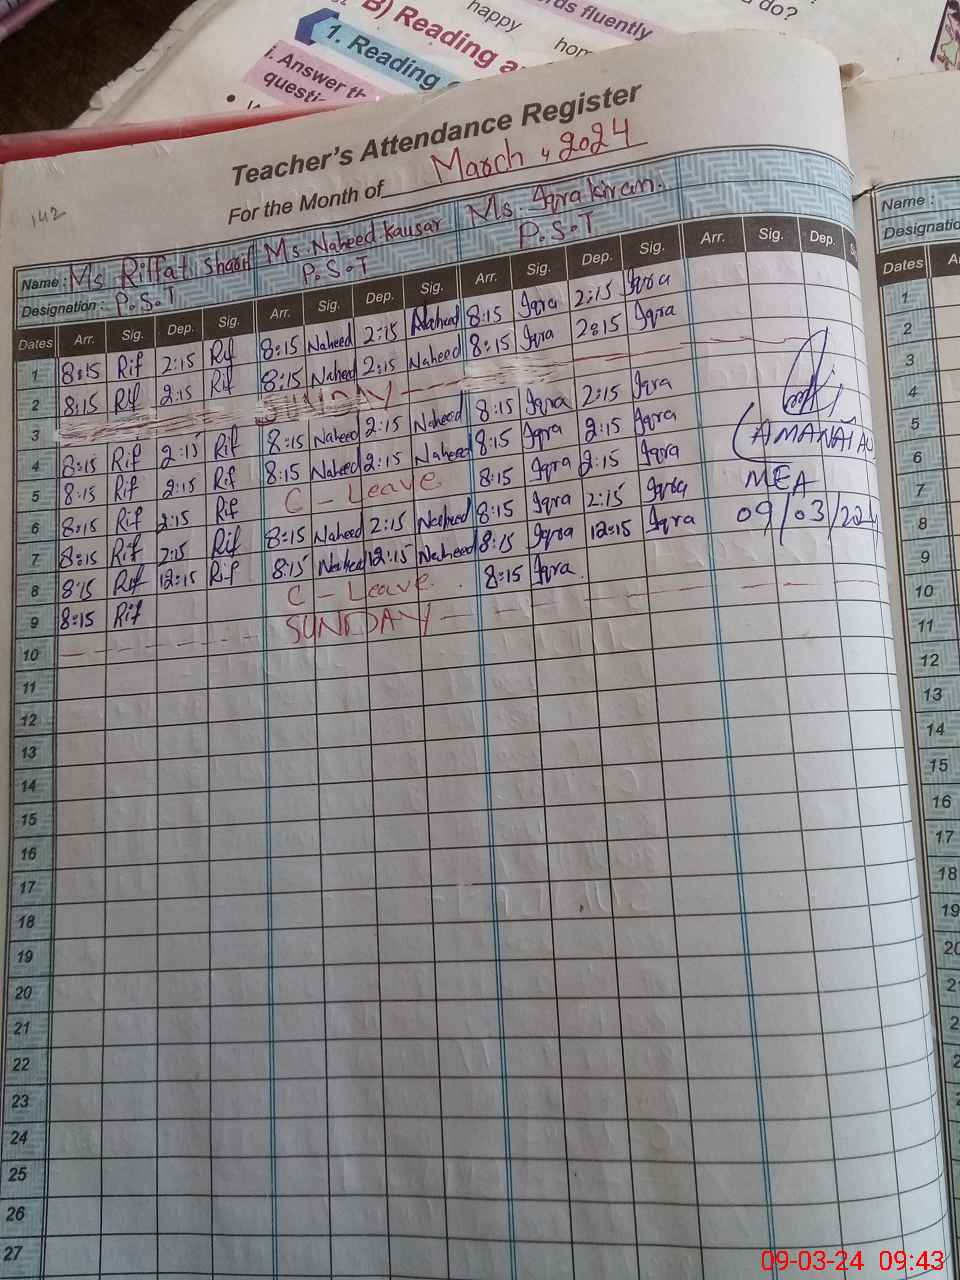 happy
rds fluently
do?
B) Reading a
1. Reading
hom
i. Answer th
questi
Teacher's Attendance Register
For the Month of March, 2024
142
Name: Ms Riffat Sharif Ms. Naheed Kausar Ms. Iqra kiran.
Designation: P.S.T P.S.T P.S.T
Dates Arr. Sig. Dep. Sig. Arr. Sig. Dep. Sig. Arr. Sig. Dep. Sig. Arr. Sig. Dep.
1 8:15 Rif 2:15 Rif 8:15 Naheed 2:15 Naheed 8:15 Iqra 2:15 Iqra
2 8:15 Rif 2:15 Rif 8:15 Naheed 2:15 Naheed 8:15 Iqra 2:15 Iqra
3 SUNDAY
4 8:15 Rif 2:15 Rif 8:15 Naheed 2:15 Naheed 8:15 Iqra 2:15 Iqra
5 8:15 Rif 2:15 Rif 8:15 Naheed 2:15 Naheed 8:15 Iqra 2:15 Iqra
6 8:15 Rif 2:15 Rif C - Leave 8:15 Iqra 2:15 Iqra
7 8:15 Rif 2:15 Rif 8:15 Naheed 2:15 Naheed 8:15 Iqra 2:15 Iqra
8 8:15 Rif 12:15 Rif 8:15 Naheed 12:15 Naheed 8:15 Iqra 12:15 Iqra
9 8:15 Rif C - Leave. 8:15 Iqra.
10 SUNDAY
11
12
13
14
15
16
17
18
19
20
21
22
23
24
25
26
27
MEA
Name:
Designatio
Dates
1
2
3
4
5
6
7
8
9
10
11
12
13
14
15
16
17
18
19
09-03-24 09:43